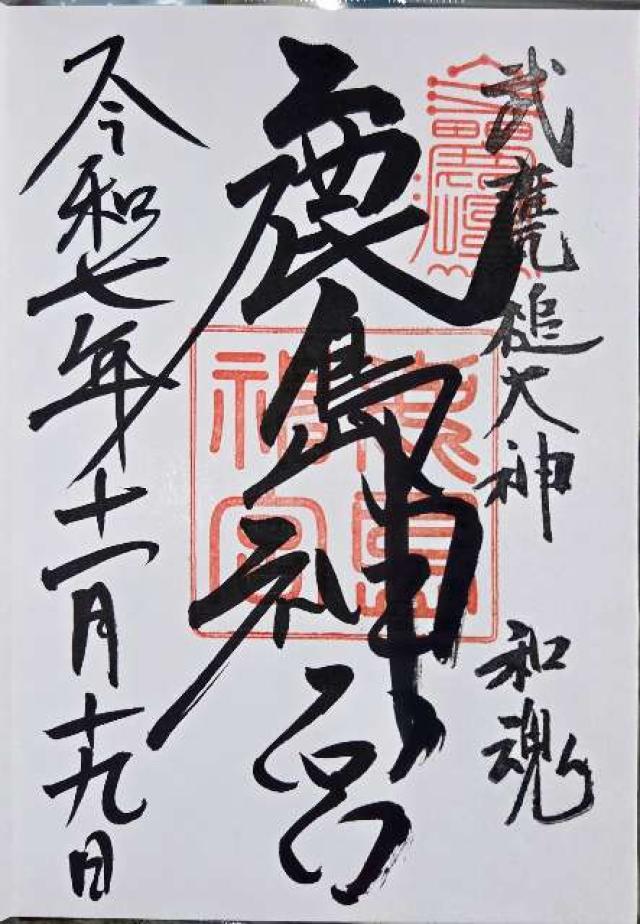 武甕槌大神 和魂
鹿島神宮
鹿島神宮
令和七年十一月十九日